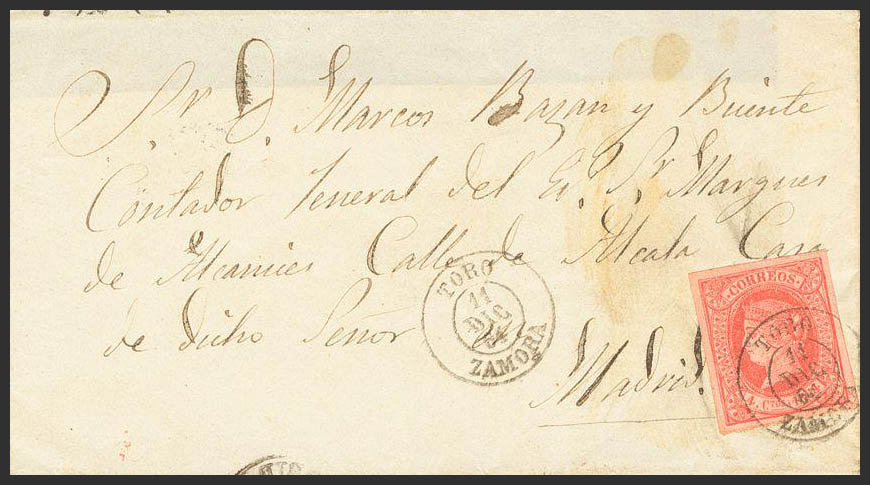 Sr. D. Marcos Bazan y Buiente
Contador General del E. Sr. Marques
de Alcanices Calle de Alcala Casa
de dicho Señor en
Madrid
TORO
11
DIC
64
ZAMORA
CORREOS
4. Cs
TORO
11
DIC
64
ZAMORA